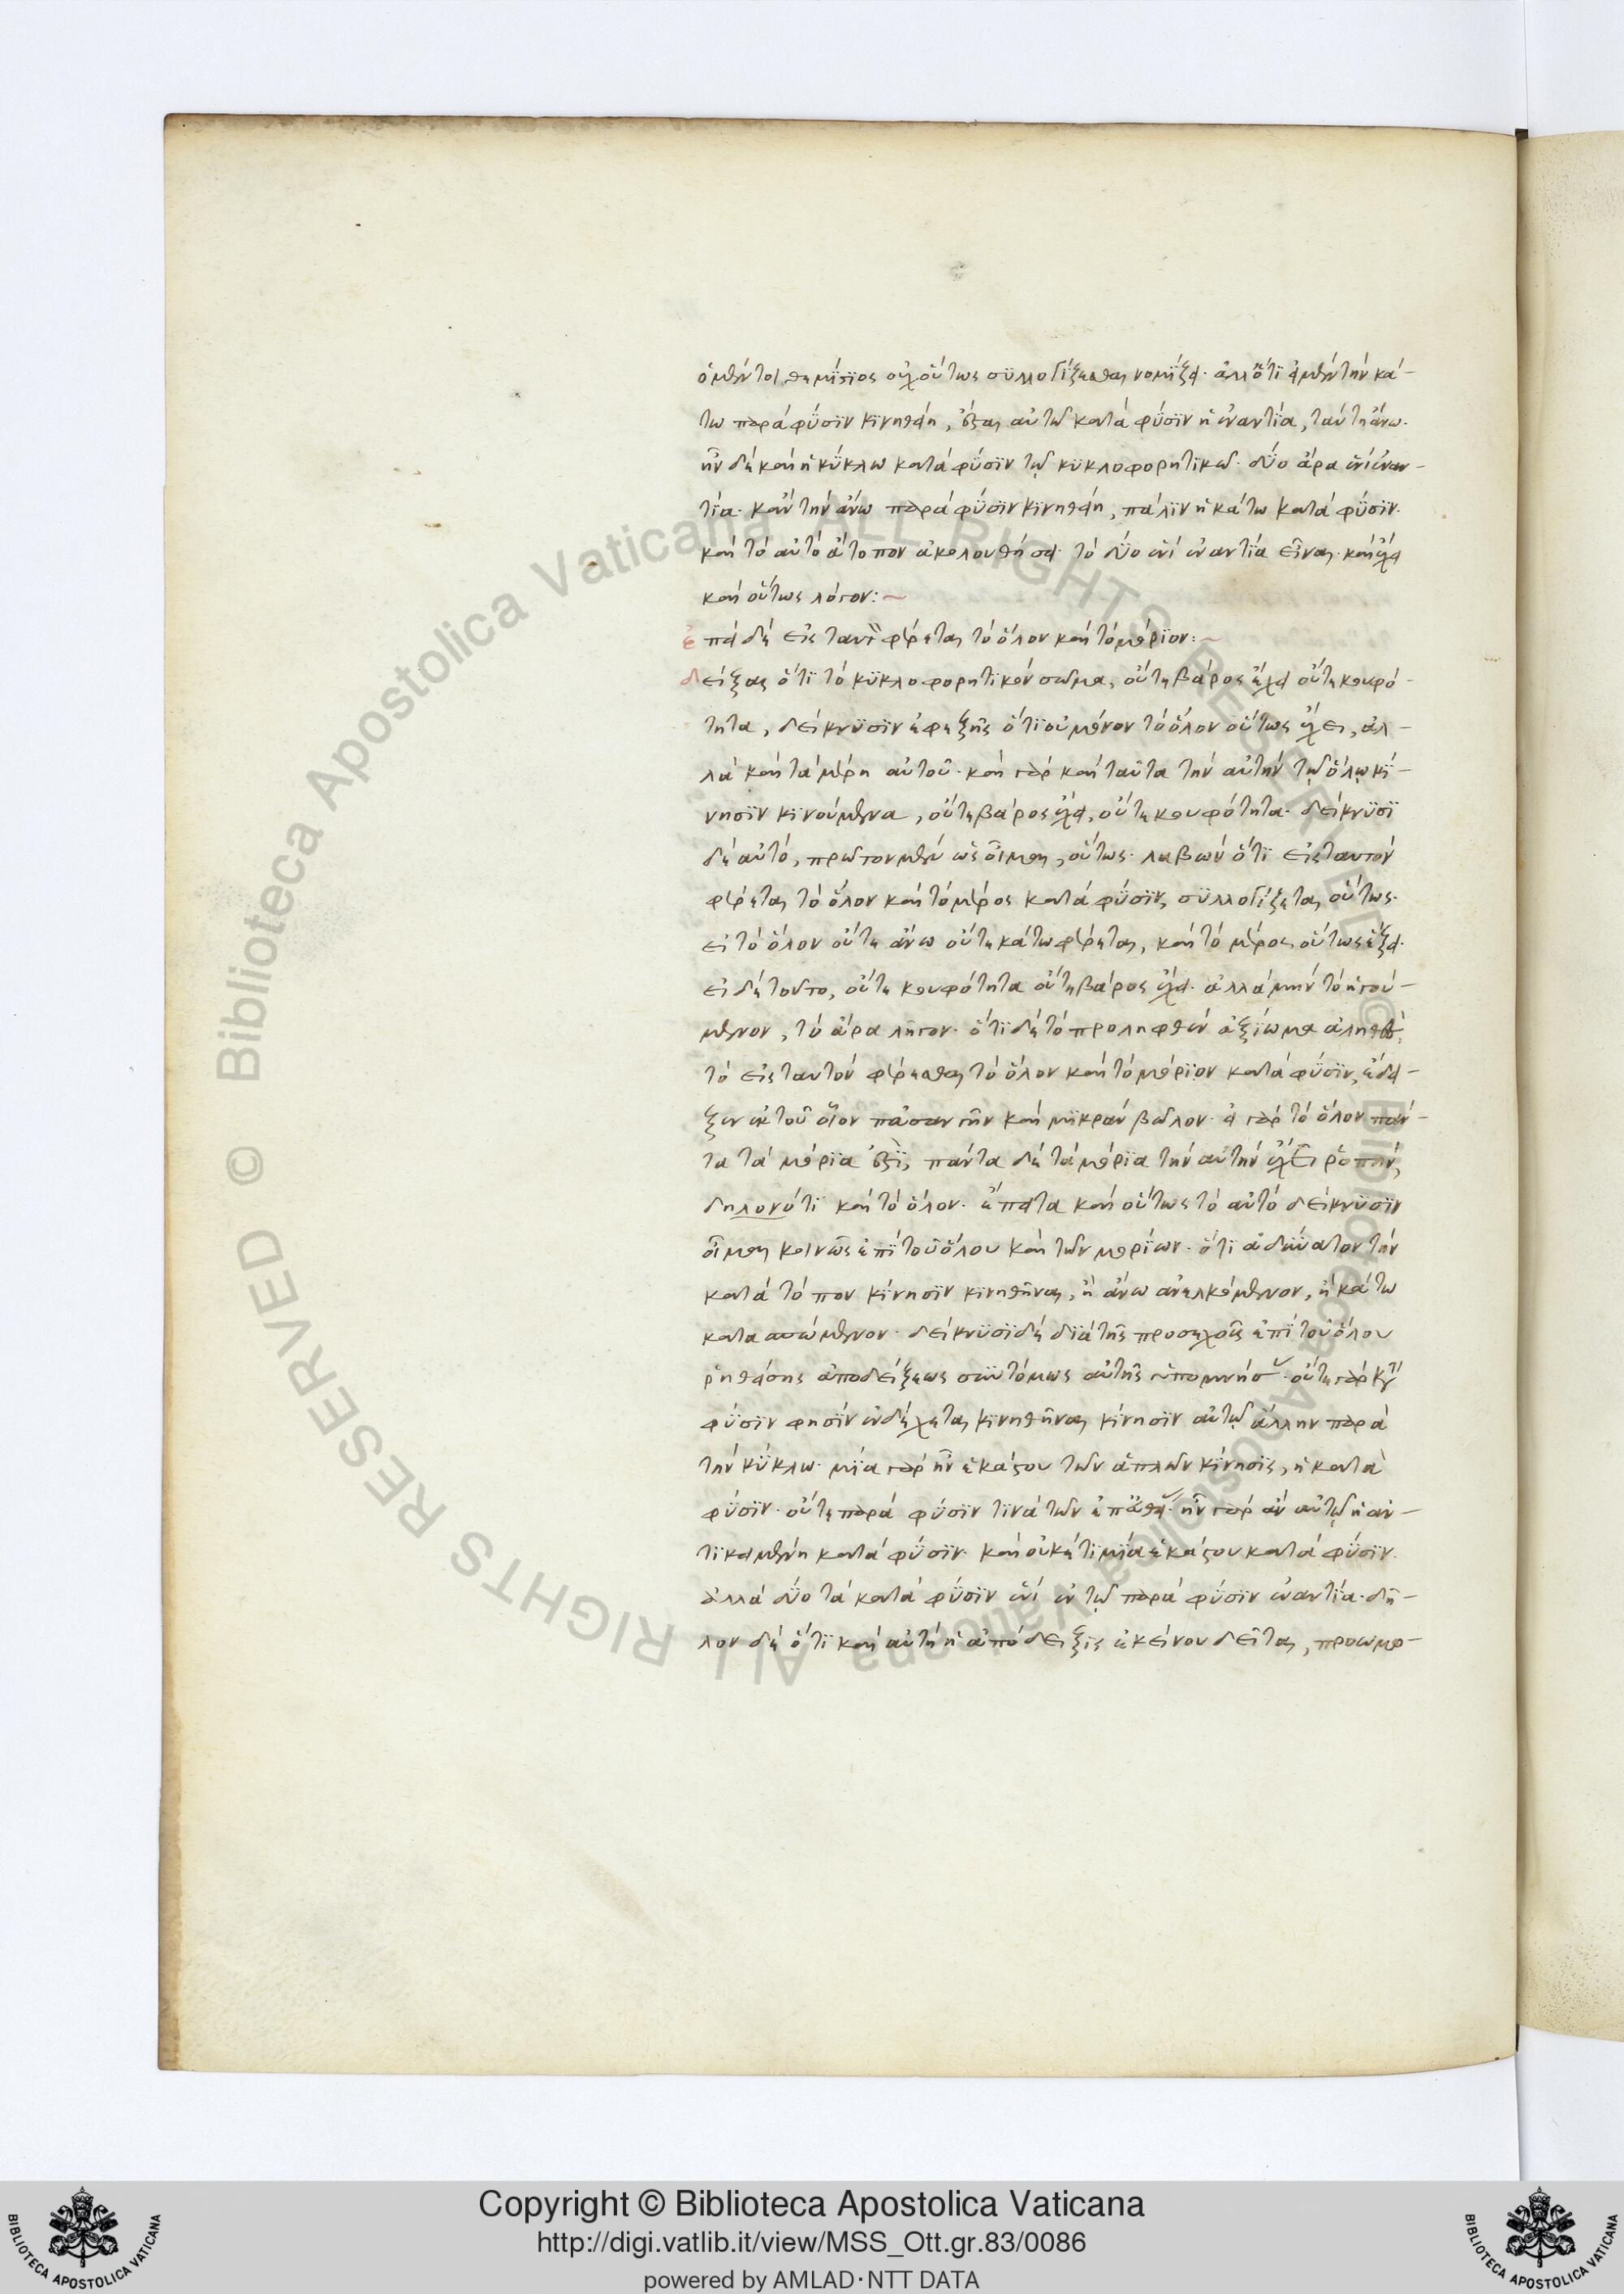 ὁ μέντοι θεμίστιος οὐχ οὕτως συλλογίζεσθαι νομίζει· ἀλλ' ὅτι εἰ μὲν τὴν κά-
τω παρὰ φύσιν κινηθείη, ἔσται αὐτῶ κατὰ φύσιν ἡ ἐναντία, ταύτη ἄνω·
ἦν δὲ καὶ ἡ κύκλω κατὰ φύσιν τῷ κυκλοφορητικῶ· δύο ἄρα ἑνὶ ἐναν-
τία· κἂν τὴν ἄνω παρὰ φύσιν κινηθείη, πάλιν ἡ κάτω κατὰ φύσιν·
καὶ τὸ αὐτὸ ἄτοπον ἀκολουθήσει· τὸ δύο ἑνὶ ἐναντία εἶναι· καὶ ἔχει
καὶ οὕτως λόγον:~
ἐπεὶ δὲ εἰς ταυτὸ φέρεται τὸ ὅλον καὶ τὸ μόριον:~
δείξας ὅτι τὸ κυκλοφορητικὸν σῶμα, οὔτε βάρος ἔχει οὔτε κουφό-
τητα, δείκνυσιν ἐφεξῆς ὅτι οὐ μόνον τὸ ὅλον οὕτως ἔχει, ἀλ-
λὰ καὶ τὰ μέρη αὐτοῦ· καὶ γὰρ καὶ ταῦτα τὴν αὐτὴν τῷ ὅλῳ κί-
νησιν κινούμενα, οὔτε βάρος ἔχει, οὔτε κουφότητα· δείκνυσι
δὲ αὐτό, πρῶτον μὲν ὡς οἶμαι, οὕτως· λαβὼν ὅτι εἰς ταυτὸν
φέρεται τὸ ὅλον καὶ τὸ μέρος κατὰ φύσιν, συλλογίζεται οὕτως·
εἰ τὸ ὅλον οὔτε ἄνω οὔτε κάτω φέρεται, καὶ τὸ μέρος οὕτως ἕξει·
εἰ δὲ τοῦτο, οὔτε κουφότητα οὔτε βάρος ἔχει· ἀλλὰ μὴν τὸ ἡγού-
μενον, τὸ ἄρα λῆγον· ὅτι δὲ τὸ προληφθὲν ἀξίωμα ἀληθὲς,
τὸ εἰς ταυτὸν φέρεσθαι τὸ ὅλον καὶ τὸ μόριον κατὰ φύσιν, ἔδει-
ξεν ἐκ τοῦ οἷον πᾶσαν γῆν καὶ μικρὰν βῶλον· εἰ γὰρ τὸ ὅλον πάν-
τα τὰ μόρια ἐστὶ, πάντα δὲ τὰ μόρια τὴν αὐτὴν ἔχει ῥοπὴν,
δηλονότι καὶ τὸ ὅλον· ἔπειτα καὶ οὕτως τὸ αὐτὸ δείκνυσιν
οἶμαι κοινῶς ἐπὶ τοῦ ὅλου καὶ τῶν μορίων· ὅτι ἀδύνατον τὴν
κατὰ τόπον κίνησιν κινηθῆναι, ἢ ἄνω ἀνελκόμενον, ἢ κάτω
κατασπώμενον· δείκνυσι δὲ διὰ τῆς προσεχοῦς ἐπὶ τοῦ ὅλου
ῥηθείσης ἀποδείξεως συντόμως αὐτῆς ὑπομνήσας· οὔτε γὰρ κατὰ
φύσιν φησὶν ἐνδέχεται κινηθῆναι κίνησιν αὐτῷ ἄλλην παρὰ
τὴν κύκλω· μία γὰρ ἦν ἑκάστου τῶν ἁπλῶν κίνησις, ἡ κατὰ
φύσιν· οὔτε παρὰ φύσιν τινὰ τῶν ἐπ' εὐθείας· ἦν γὰρ ἂν αὐτῷ ἡ ἀν-
τικειμένη κατὰ φύσιν· καὶ οὐκέτι μία ἑκάστου κατὰ φύσιν·
ἀλλὰ δύο τὰ κατὰ φύσιν ἑνὶ ἐν τῷ παρὰ φύσιν ἐναντία· δῆ-
λον δὲ ὅτι καὶ αὐτὴ ἡ ἀπόδειξις ἐκείνου δεῖται, προωμο-
Copyright © Biblioteca Apostolica Vaticana
http://digi.vatlib.it/view/MSS_Ott.gr.83/0086
powered by AMLAD·NTT DATA
BIBLIOTECA APOSTOLICA VATICANA
BIBLIOTECA APOSTOLICA VATICANA
© Biblioteca Apostolica Vaticana ALL RIGHTS RESERVED
© Biblioteca Apostolica Vaticana ALL RIGHTS RESERVED